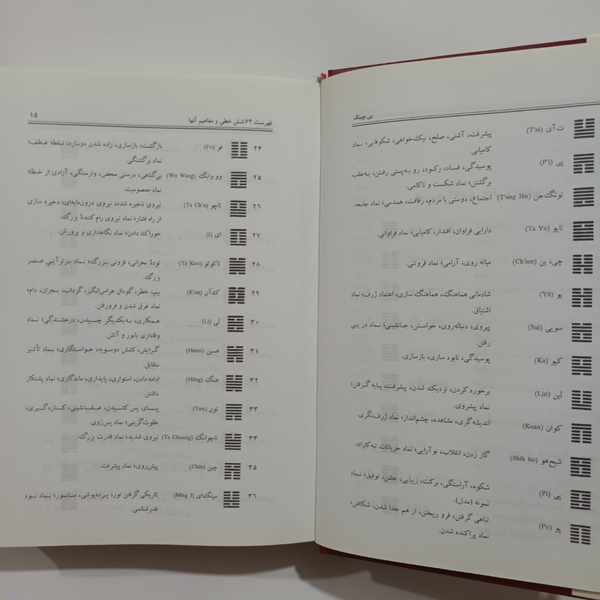 یی جینگ
ت‌آی (T'ai) پیشرفت، آشتی، صلح، نیک‌خواهی، شکوفایی؛ نماد
کامیابی.
پی (P'i) پوسیدگی، فساد، رکود، رو به‌پستی رفتن، به‌عقب
برگشتن؛ نماد شکست و ناکامی.
تونگ‌جن (T'ung Jên) اجتماع، دوستی با مردم، رفاقت، همدمی؛ نماد جامعه.
تایو (Ta Yu) دارایی فراوان، اقتدار، کامیابی؛ نماد فراوانی.
چی‌ین (Ch'ien) میانه روی، آرامی؛ نماد فروتنی.
یو (Yü) شادمانی هماهنگ، هماهنگ سازی، اعتماد ژرف؛ نماد
اشتیاق.
سویی (Sui) پیروی، دنباله‌روی، خواستن، جانشینی؛ نماد در پی
رفتن.
کیو (Ku) پوسیدگی، نابود سازی، بازسازی.
لین (Lin) برخورد کردن، نزدیک شدن، پیشرفت، پنابه‌گرفتن؛
نماد پیشروی.
کوان (Kuan) اندیشه‌گری، مشاهده، چشم‌انداز؛ نماد ژرف‌نگری.
شیح‌هو (Shih ho) گاز زدن، انقلاب، نوآرایی؛ نماد جریانات تبه‌کارانه.
پی (Pi) شکوه، آراستگی، برکت، زیبایی، جشن، توفیق؛ نماد
نمونه (مدل).
پو (Po) تباهی گرفتن، فرو ریختن، از هم جدا شدن، شکافتن؛
نماد پراکنده شدن.
فهرست ۶۴ شش خطی و مفاهیم آنها ۱۵
۲۴ فو (Fu) بازگشت، بازسازی، زاده شدن دوباره، نقطهٔ عطف؛
نماد برگشتگی.
۲۵ وو وانگ (Wu Wang) بی‌گناهی، درستی محض، وارستگی، آزادی از خطا؛
نماد معصومیت.
۲۶ تاچو (Ta Ch'u) نیروی ذخیره شده، نیروی درون‌مایه‌ای، ذخیره سازی
از راه فشار؛ نماد نیروی رام کنندهٔ بزرگ.
۲۷ ای (I) خوراک دادن؛ نماد نگاهداری و پرورش.
۲۸ تاکوئو (Ta Kuo) تودهٔ بحرانی، فزونی بزرگ؛ نماد برتر‌آیی عنصر
بزرگ.
۲۹ ک‌آن (K'an) بیم، خطر، گودال هراس‌انگیز، گرداب، بحران، دام؛
نماد غرق شدن و فرورفتن.
۳۰ لی (Li) همکاری، به‌یکدیگر چسبیدن، درخشندگی؛ نماد
وفاداری بانور و آتش.
۳۱ هسین (Hsien) گرایش، کشش دوسویه، خواستگاری؛ نماد تأثیر
متقابل.
۳۲ هنگ (Hêng) ادامه‌دادن، استواری، پایداری، ماندگاری؛ نماد پشتکار
داشتن.
۳۳ تون (Tun) پس‌پای پس کشیدن، عقب‌نشینی، کناره‌گیری،
خلوت‌گزینی؛ نماد پس‌روی.
۳۴ تاچوانگ (Ta Chuang) نیروی شدید؛ نماد قدرت بزرگ.
۳۵ چین (Chin) پیش‌روی؛ نماد پیشرفت.
۳۶ مینگ‌ای (Ming I) تاریکی گرفتن نور، پرده‌پوشی، سانسور؛ نماد نبود
قدرشناسی.